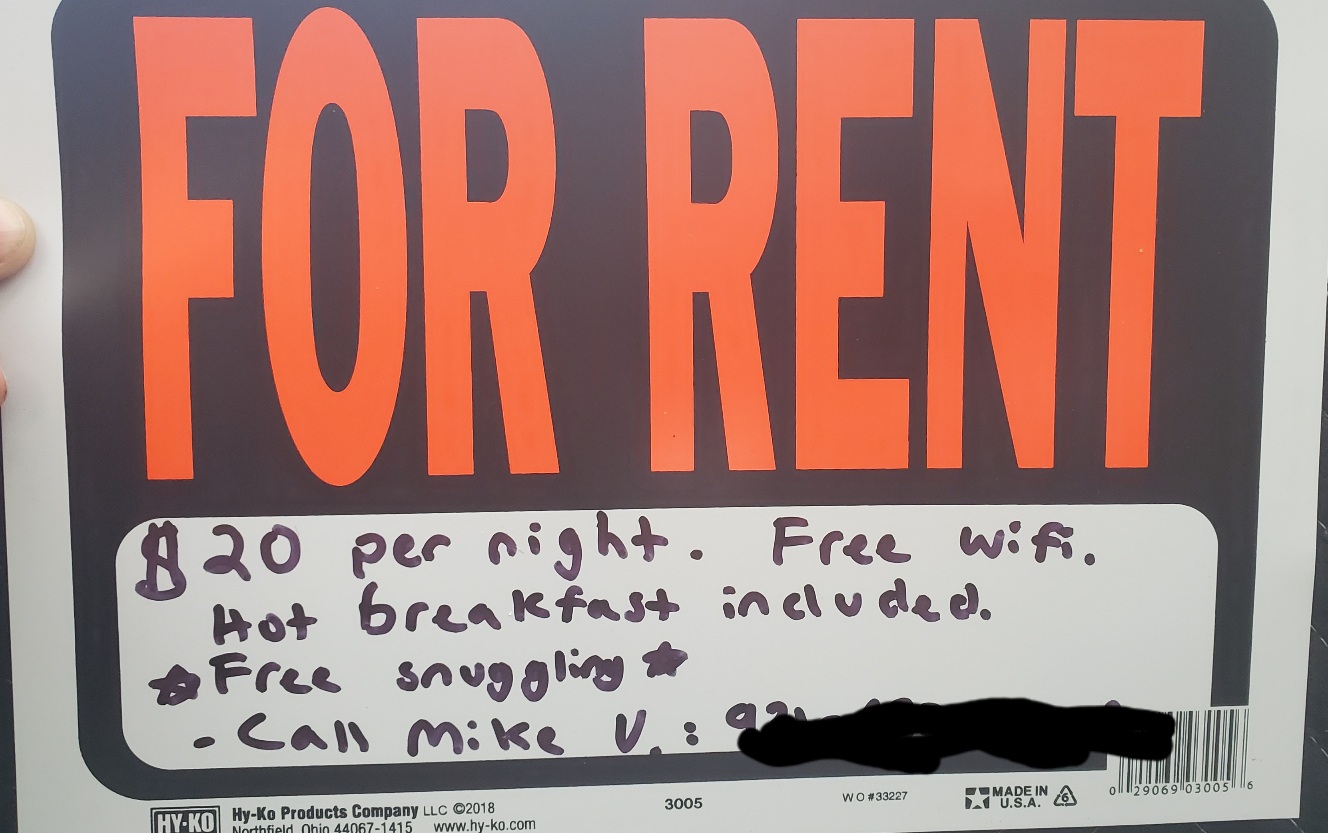 FOR RENT
$20 per night. Free wifi.
Hot breakfast included.
☆Free snuggling☆
- Call Mike V.:
HY-KO
Hy-Ko Products Company LLC ©2018
Northfield, Ohio 44067-1415 www.hy-ko.com
3005
WO#33227
MADE IN
U.S.A.
6
0 29069 03005 6